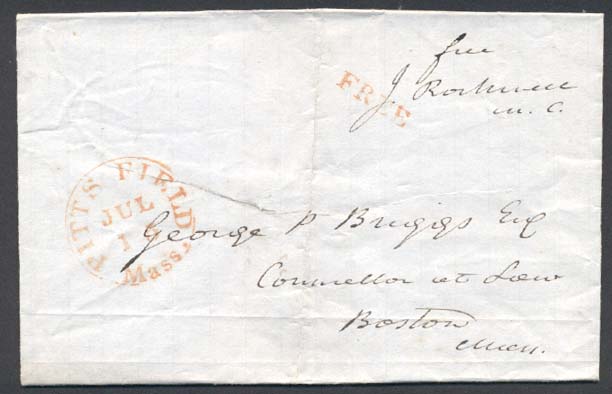 free
J Rockwell
M. C.
FREE
PITTSFIELD
JUL
1
Mass.
George P Briggs Esq
Counsellor at Law
Boston
Mass.